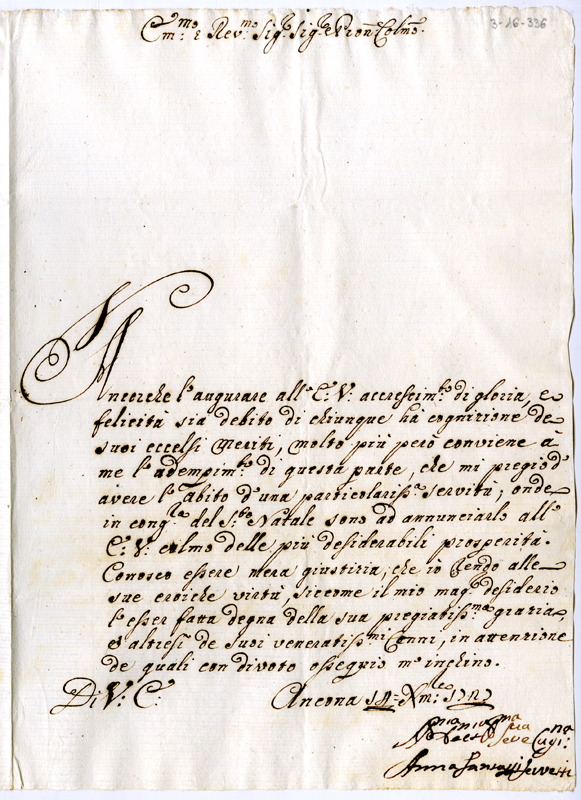 3-16-336
Em:mo e Rev:mo Sig:r Sig:r e Pron Colmo.
Ancorche l'augurare all'E. V. accrescim:to di gloria, e
felicità sia debito di chiunque hà cognizione de
suoi eccelsi Meriti, molto più però conviene à
me l'adempim:to di questa parte, che mi pregio d'
avere l'abito d'una particolariss:a servitù; onde
in cong:ra del S:to Natale sono ad annunciarlo all'
E. V. colmo delle più desiderabili prosperità.
Conosco essere mera giustizia, che io rendo alle
sue eroiche virtù, siccome il mio mag:r desiderio
l'esser fatta degna della sua pregiatiss:ma grazia,
& altresì de suoi veneratiss:mi Cenni, in attenzione
de quali con divoto ossequio m'inchino.
Di V: E. Ancona 14: Xm:bre
Anna